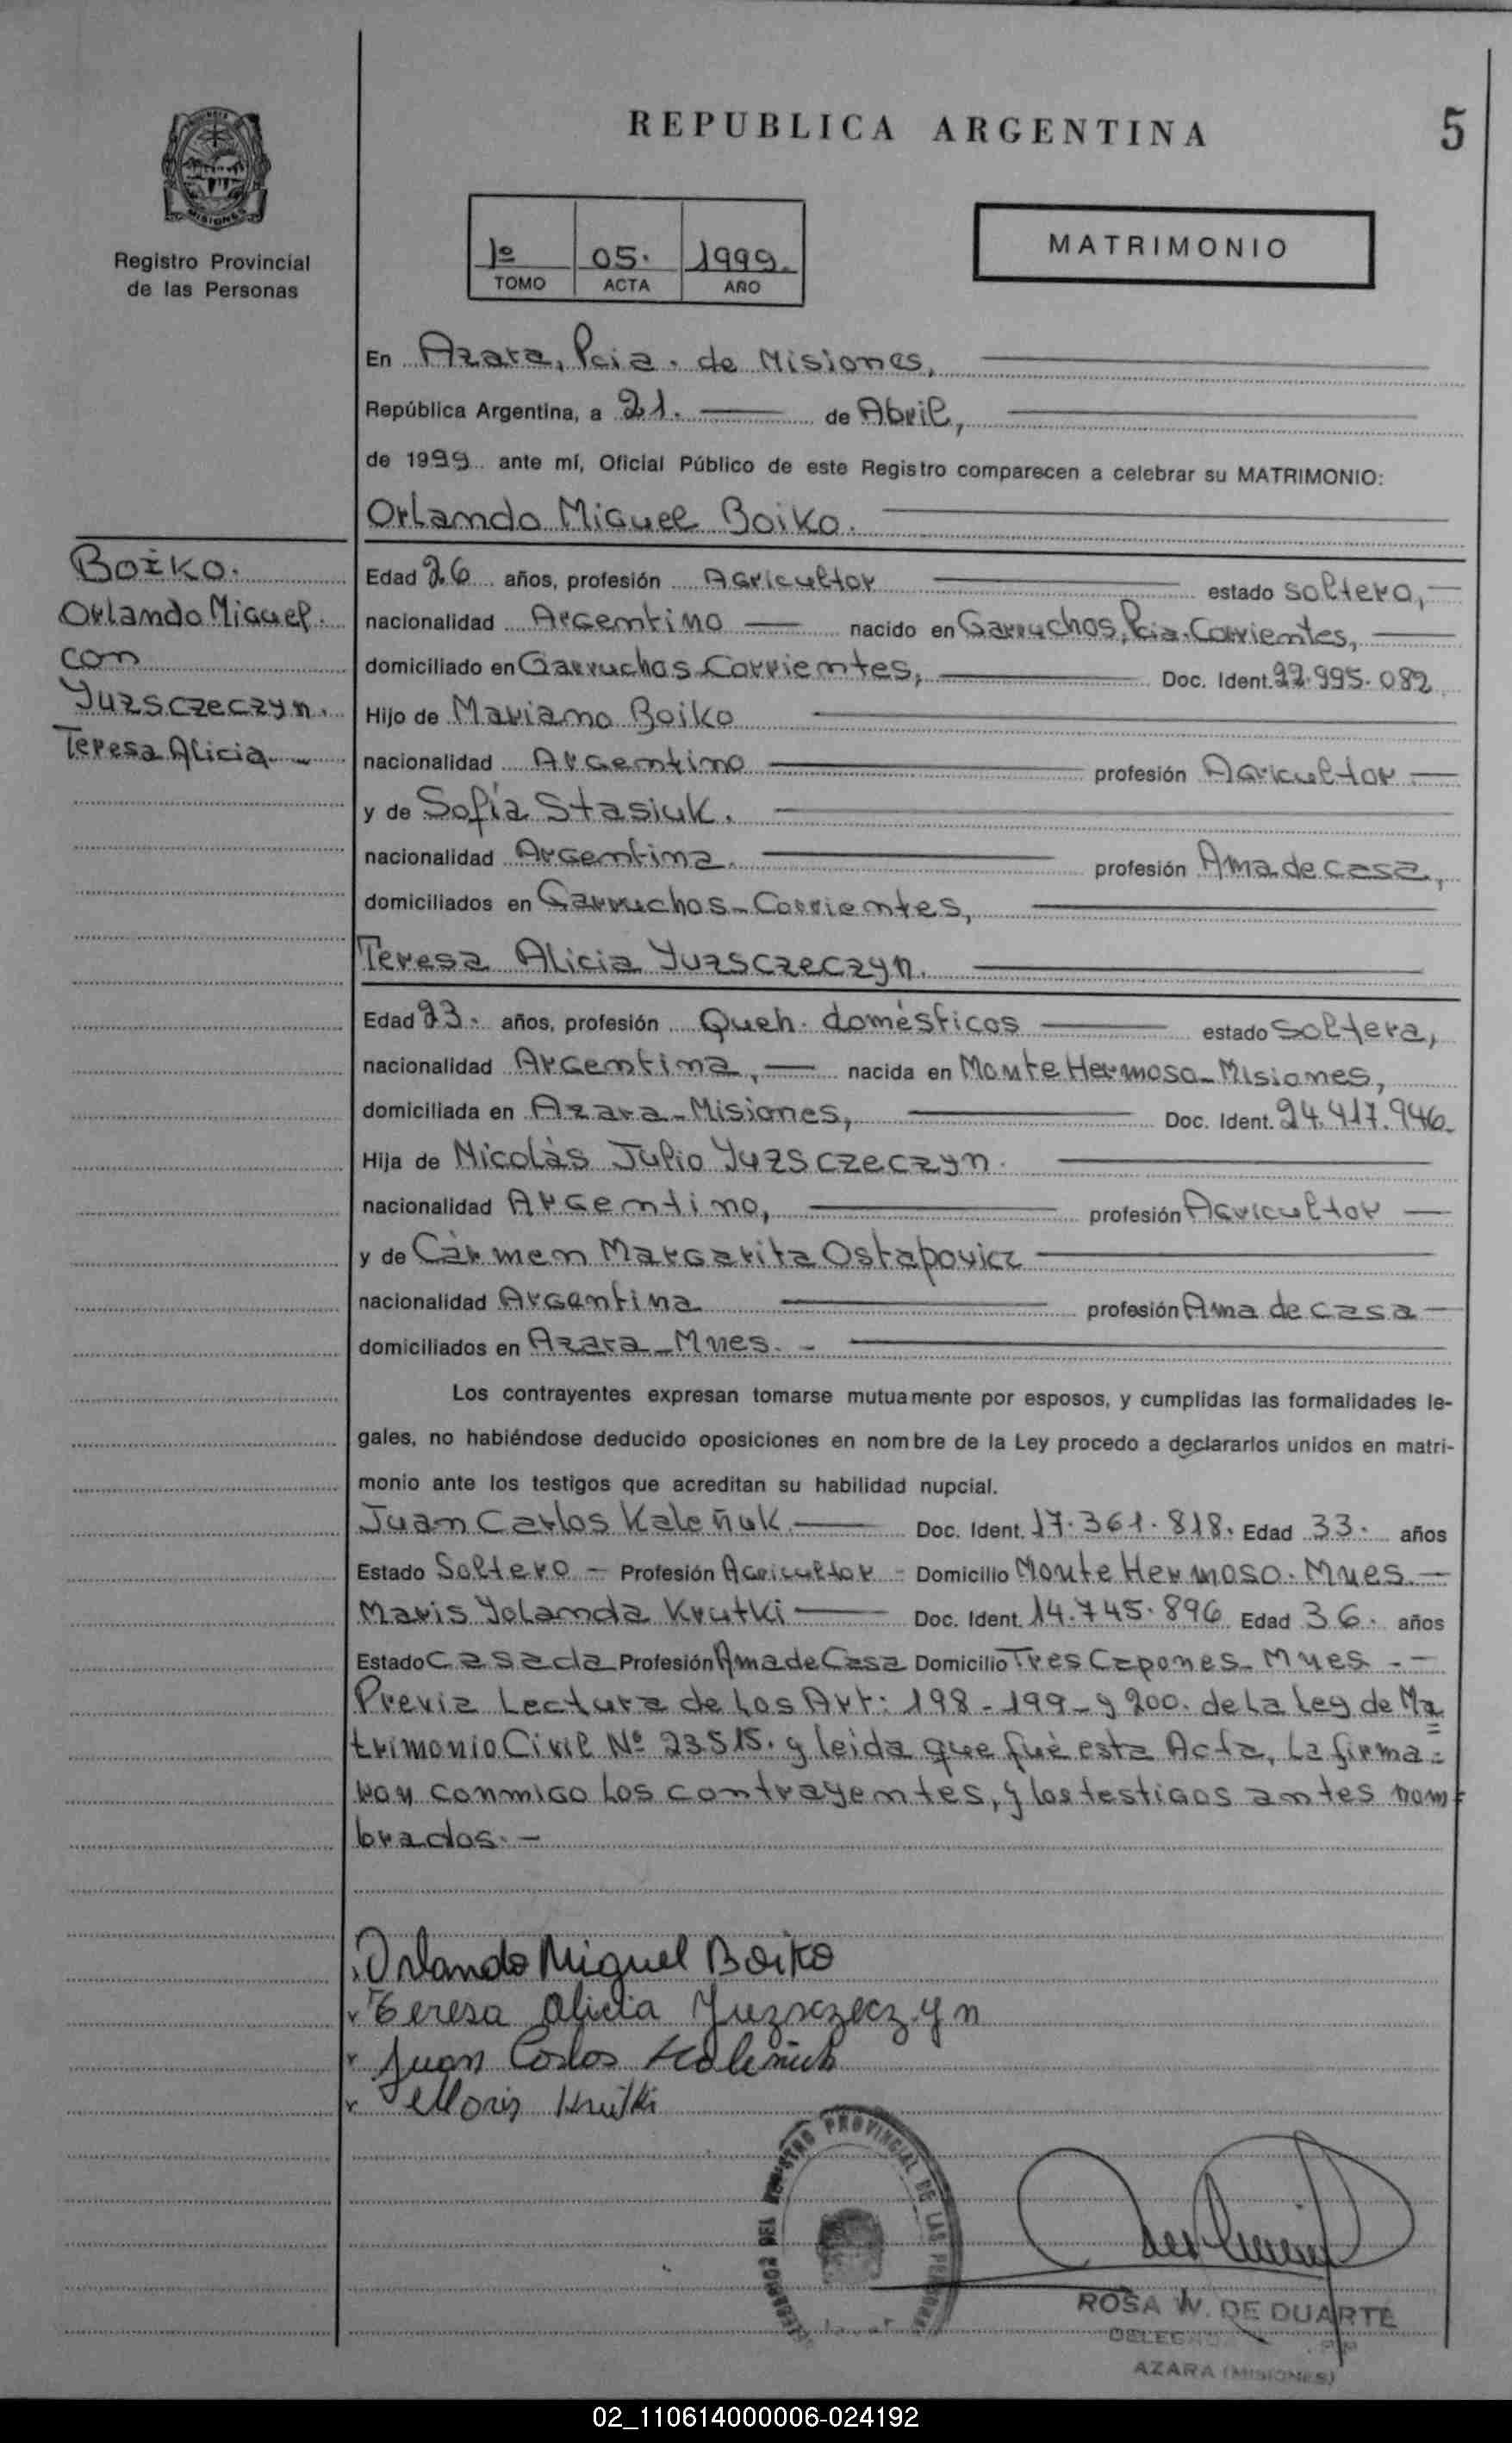 REPUBLICA ARGENTINA
5
MISIONES
Registro Provincial
de las Personas
1º 05. 1999.
TOMO ACTA AÑO
MATRIMONIO
En Azara, Pcia. de Misiones,
República Argentina, a 21. de Abril,
de 1999 ante mí, Oficial Público de este Registro comparecen a celebrar su MATRIMONIO:
Orlando Miguel Boiko.
Boiko.
Orlando Miguel.
con
Yuzsczeczyn.
Teresa Alicia
Edad 26 años, profesión Agricultor estado soltero,
nacionalidad Argentino nacido en Garruchos, Pcia. Corrientes,
domiciliado en Garruchos Corrientes, Doc. Ident. 22.995.082
Hijo de Mariano Boiko
nacionalidad Argentino profesión Agricultor
y de Sofía Stasiuk.
nacionalidad Argentina. profesión Ama de casa,
domiciliados en Garruchos-Corrientes,
Teresa Alicia Yuzsczeczyn.
Edad 23. años, profesión Queh. domésticos estado Soltera,
nacionalidad Argentina, nacida en Monte Hermoso-Misiones,
domiciliada en Azara-Misiones, Doc. Ident. 24.417.946.
Hija de Nicolás Julio Yuzsczeczyn.
nacionalidad Argentino, profesión Agricultor
y de Cármen Margarita Ostapovicz
nacionalidad Argentina profesión Ama de casa
domiciliados en Azara-Mnes. -
Los contrayentes expresan tomarse mutuamente por esposos, y cumplidas las formalidades le-
gales, no habiéndose deducido oposiciones en nombre de la Ley procedo a declararlos unidos en matri-
monio ante los testigos que acreditan su habilidad nupcial.
Juan Carlos Kaleñuk. Doc. Ident. 17.361.818. Edad 33. años
Estado Soltero - Profesión Agricultor - Domicilio Monte Hermoso. Mnes.-
Maris Yolanda Krutki Doc. Ident. 14.745.896 Edad 36. años
Estado Casada Profesión Ama de Casa Domicilio Tres Capones-Mnes.-
Previa Lectura de Los Art: 198-199-y 200. de La Ley de Ma
trimonio Civil Nº 23515. y leida que fué esta Acta, La firma=
ron conmigo Los contrayentes, y los testigos antes nom=
brados.-
Orlando Miguel Boiko
Teresa Alicia Yuzsczeczyn
Juan Carlos Kaleñuk
Maris Krutki
REGISTRO PROVINCIAL DE LAS PERSONAS
ROSA W. DE DUARTE
AZARA (MISIONES)
02_110614000006-024192